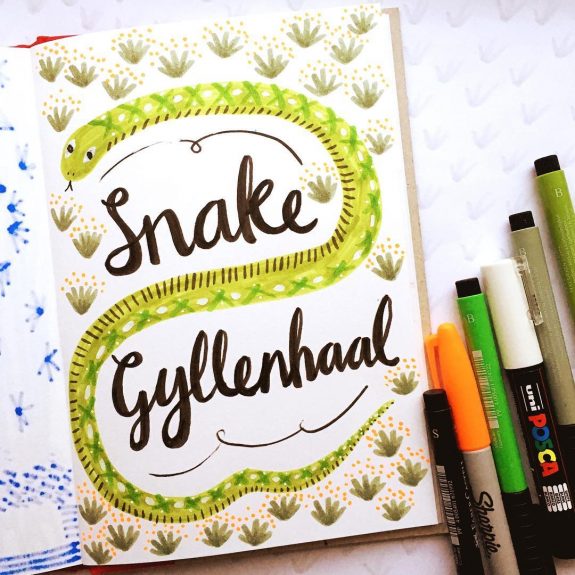 Snake
Gyllenhaal
B
B
B
S
uni
POSCA
Sharpie